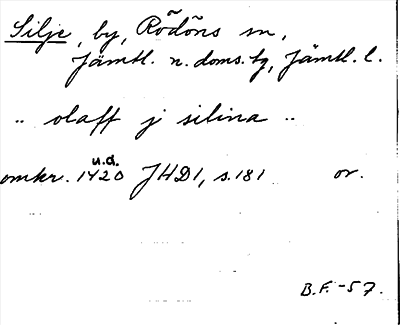 Silje, by, Rödöns sn,
Jämtl. n. doms. tg, Jämtl. l.
" olaff j silina "
u.d.
omkr. 1420 JHD1, s.181 or.
B.F. -57.